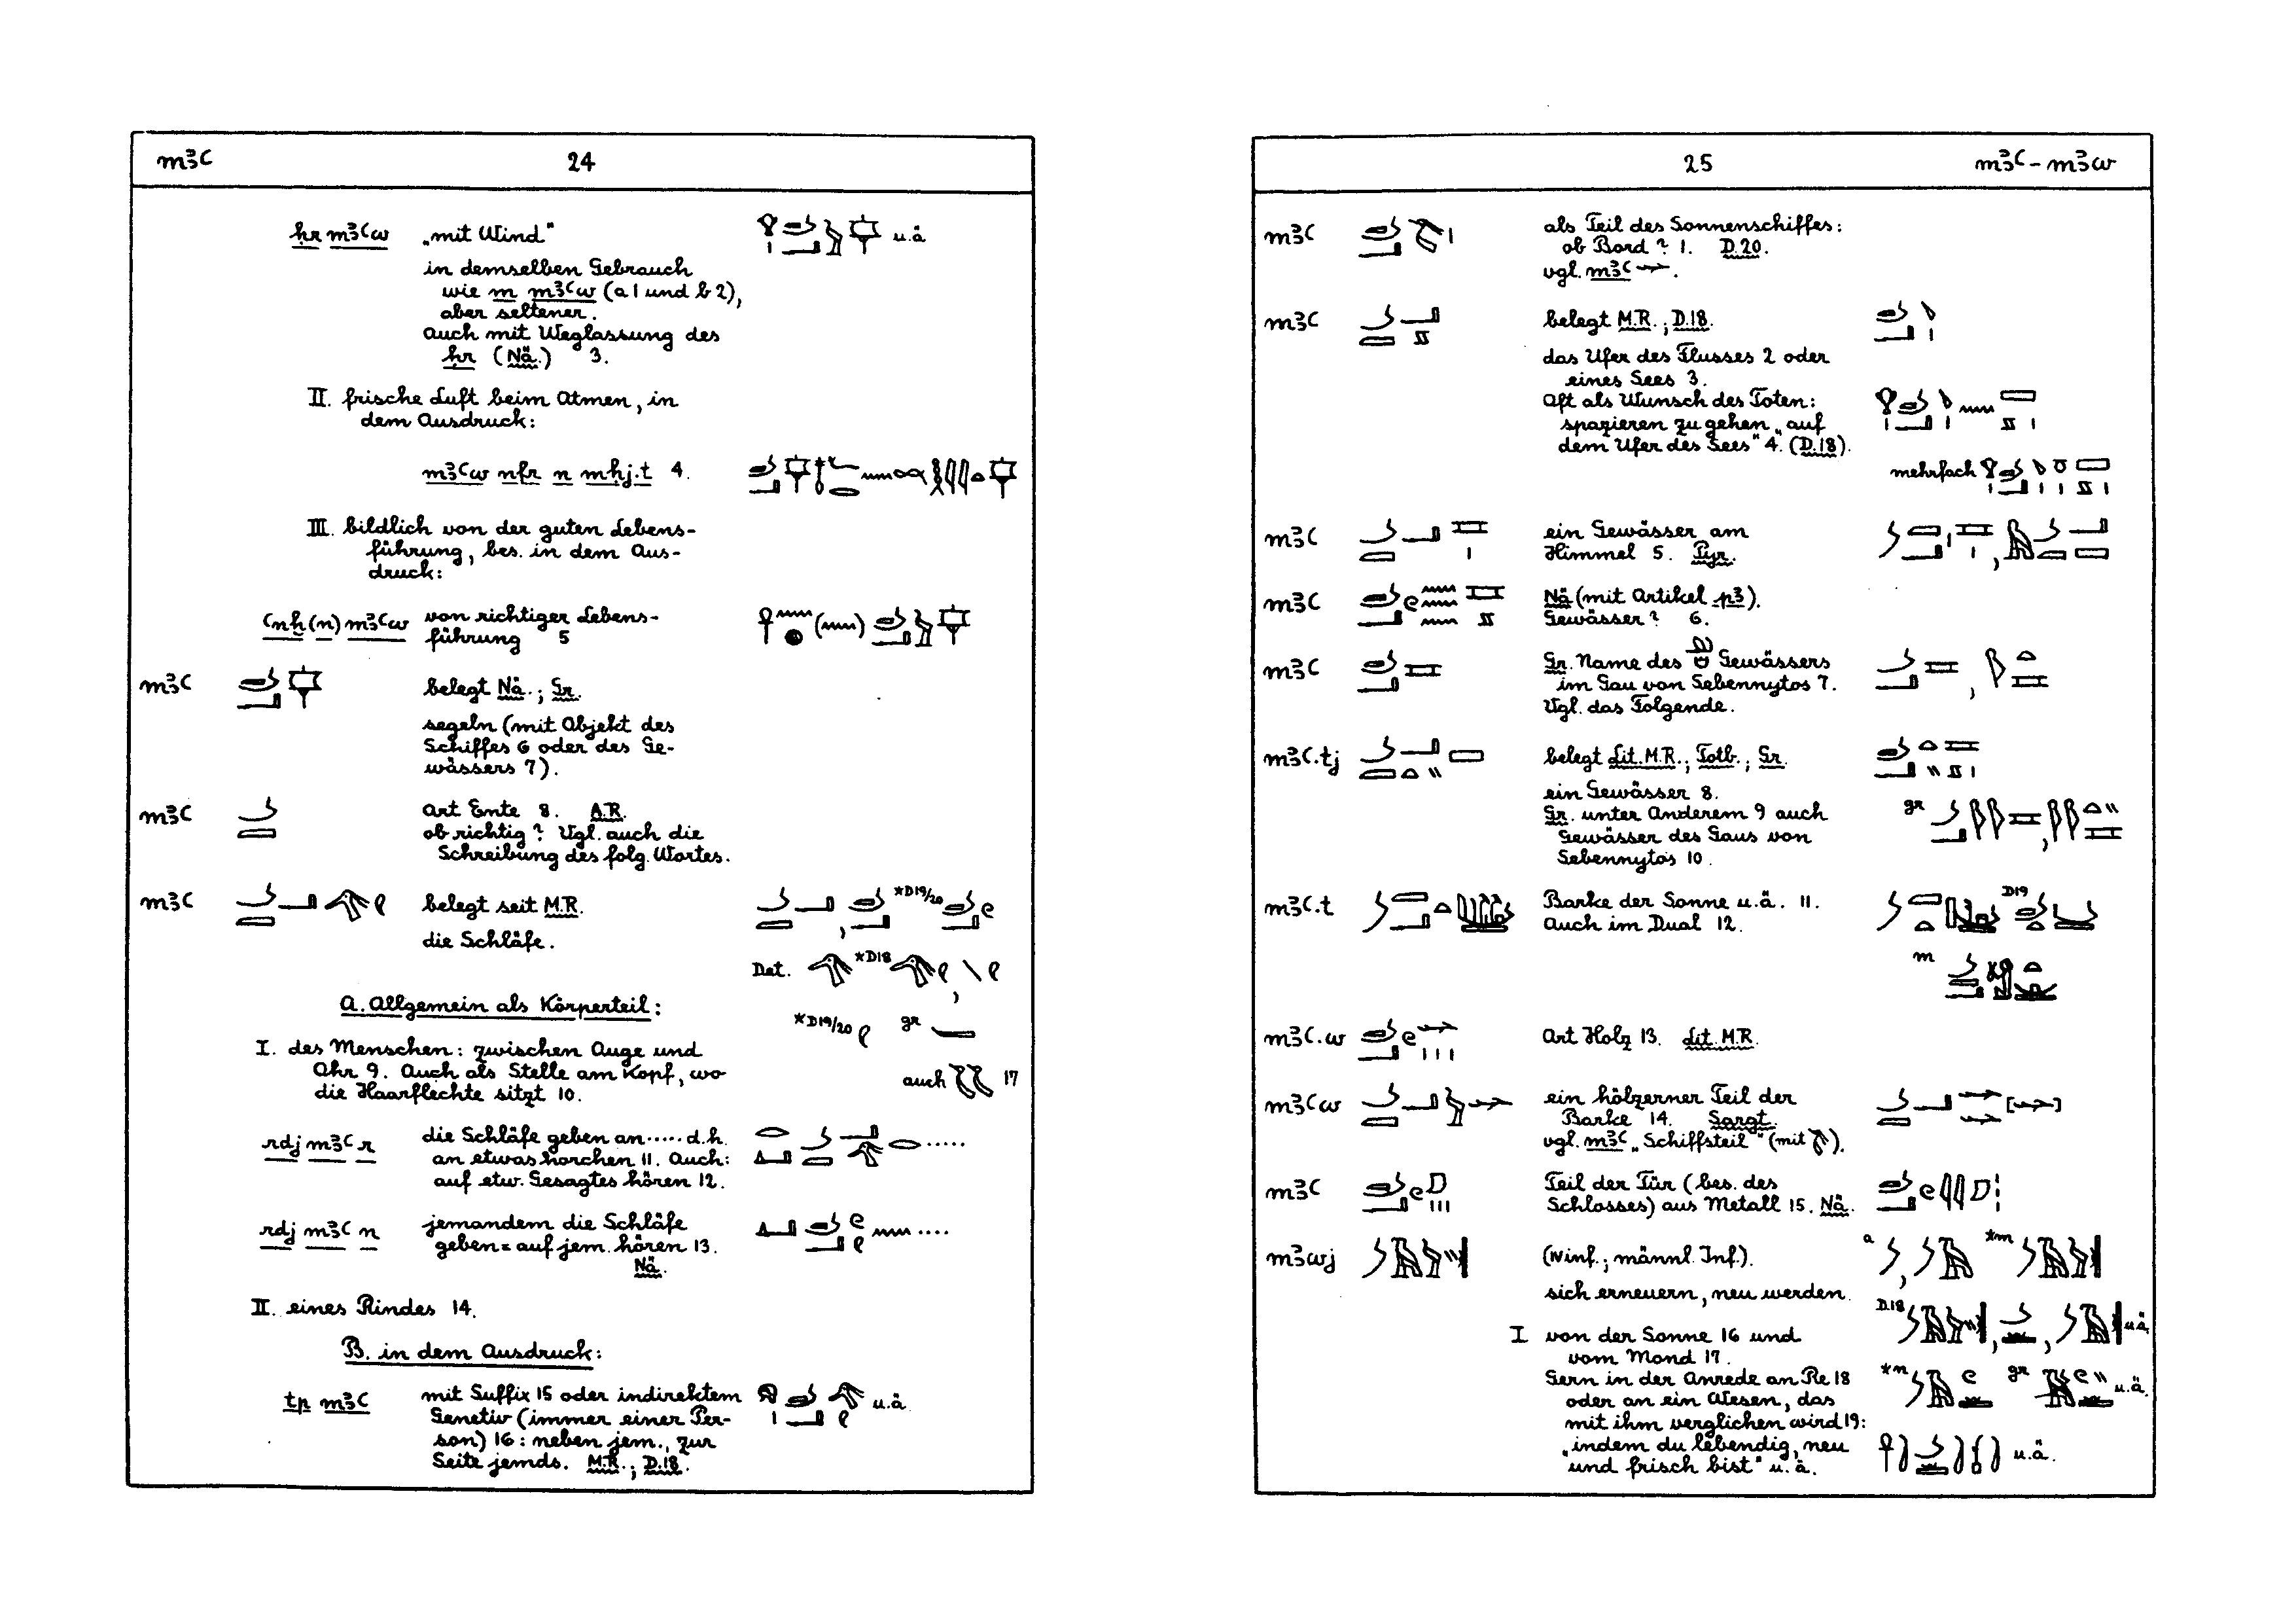 mꜣꜥ 24
ḥr mꜣꜥw „mit Wind" u.ä
in demselben Gebrauch
wie m mꜣꜥw (a 1 und b 2),
aber seltener.
auch mit Weglassung des
ḥr (Nä.) 3.
II. frische Luft beim Atmen, in
dem Ausdruck:
mꜣꜥw nfr n mḥj.t 4.
III. bildlich von der guten Lebens-
führung, bes. in dem Aus-
druck:
ꜥnḫ (n) mꜣꜥw von richtiger Lebens-
führung 5
mꜣꜥ belegt Nä.; Gr.
segeln (mit Objekt des
Schiffes 6 oder des Ge-
wässers 7).
mꜣꜥ Art Ente 8. A.R.
ob richtig? Vgl. auch die
Schreibung des folg. Wortes.
mꜣꜥ belegt seit M.R. *D19/20
die Schläfe.
Det. *D18
A. Allgemein als Körperteil:
*D19/20 gr
I. des Menschen: zwischen Auge und
Ohr 9. Auch als Stelle am Kopf, wo
die Haarflechte sitzt 10.
auch 17
rdj mꜣꜥ r die Schläfe geben an ..... d.h.
an etwas horchen 11. Auch:
auf etw. Gesagtes hören 12.
rdj mꜣꜥ n jemandem die Schläfe
geben = auf jem. hören 13.
Nä.
II. eines Rindes 14.
B. in dem Ausdruck:
tp mꜣꜥ mit Suffix 15 oder indirektem u.ä
Genetiv (immer einer Per-
son) 16: neben jem., zur
Seite jemds. M.R.; D.18.
25 mꜣꜥ - mꜣw
mꜣꜥ als Teil des Sonnenschiffes:
ob Bord? 1. D.20.
vgl. mꜣꜥ
mꜣꜥ belegt M.R.; D.18.
das Ufer des Flusses 2 oder
eines Sees 3.
Oft als Wunsch des Toten:
spazieren zu gehen „auf
dem Ufer des Sees" 4. (D.18).
mehrfach
mꜣꜥ ein Gewässer am
Himmel 5. Pyr.
mꜣꜥ Nä (mit Artikel pꜣ).
Gewässer? 6.
mꜣꜥ Gr. Name des Gewässers
im Gau von Sebennytos 7.
Vgl. das Folgende.
mꜣꜥ.tj belegt Lit. M.R.; Totb.; Gr.
ein Gewässer 8.
Gr. unter Anderem 9 auch gr
Gewässer des Gaus von
Sebennytos 10.
mꜣꜥ.t Barke der Sonne u.ä. 11. D19
Auch im Dual 12.
m
mꜣꜥ.w Art Holz 13. Lit. M.R.
mꜣꜥw ein hölzerner Teil der
Barke 14. Sargt.
vgl. mꜣꜥ „Schiffsteil" (mit ).
mꜣꜥ Teil der Tür (bes. des
Schlosses) aus Metall 15. Nä.
mꜣwj (IVinf.; männl. Inf.). a *m
sich erneuern, neu werden.
D.18 u.ä.
I von der Sonne 16 und
vom Mond 17.
Gern in der Anrede an Re 18 *n gr u.ä.
oder an ein Wesen, das
mit ihm verglichen wird 19:
„indem du lebendig, neu
und frisch bist" u.ä. u.ä.